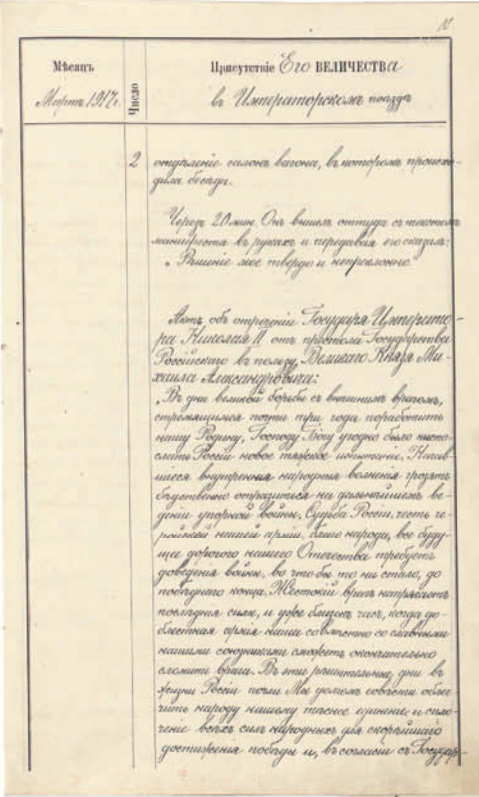 Мѣсяцъ
Мартъ 1917г.
Число
Присутствіе Его ВЕЛИЧЕСТВА
въ Императорскомъ поѣздѣ
2
отдѣленіе салонъ вагона, въ которомъ происхо-
дила бесѣда.
Черезъ 20 мин. Онъ вышелъ оттуда съ текстомъ
манифеста въ рукахъ и передавая его сказалъ:
"Рѣшеніе мое твердо и непреклонно
Актъ объ отреченіи Государя Императо-
ра Николая II отъ престола Государства
Россійскаго въ пользу Великаго Князя Ми-
хаила Александровича:
"Въ дни великой борьбы съ внѣшнимъ врагомъ,
стремящимся почти три года поработить
нашу Родину, Господу Богу угодно было ниспо-
слать Россіи новое тяжкое испытаніе. Начав-
шіеся внутреннія народныя волненія грозятъ
бѣдственно отразиться на дальнѣйшемъ ве-
деніи упорной войны. Судьба Россіи, честь ге-
ройской нашей арміи, благо народа, все буду-
щее дорогого нашего Отечества требуютъ
доведенія войны, во что бы то ни стало, до
побѣднаго конца. Жестокій врагъ напрягаетъ
послѣднія силы, и уже близокъ часъ, когда до-
блестная армія наша совмѣстно со славными
нашими союзниками сможетъ окончательно
сломить врага. Въ эти рѣшительные дни въ
жизни Россіи почли Мы долгомъ совѣсти облег-
чить народу нашему тѣсное единеніе и спло-
ченіе всѣхъ силъ народныхъ для скорѣйшаго
достиженія побѣды и, въ согласіи съ Государ-